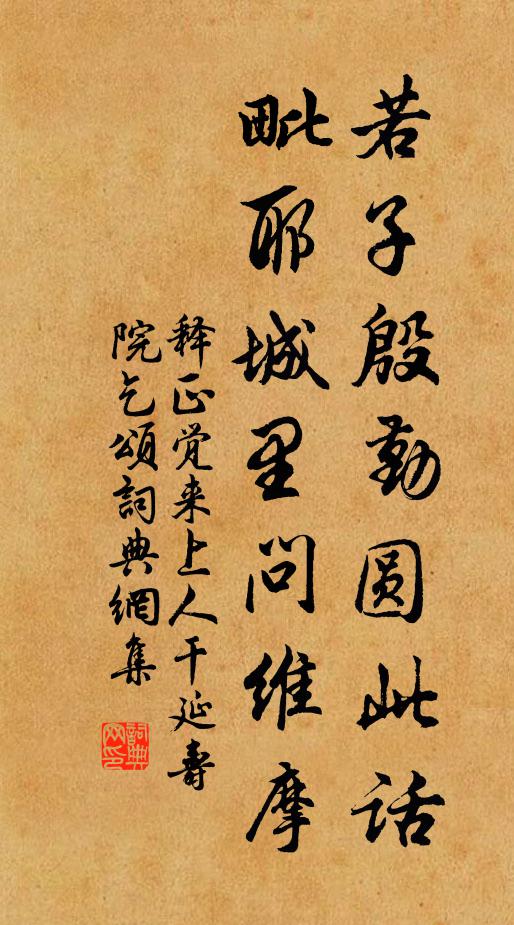 若子殷勤圆此话
毗耶城里问维摩
释正觉来上人干延壽
院乞頌詞典網集
詞典
网印